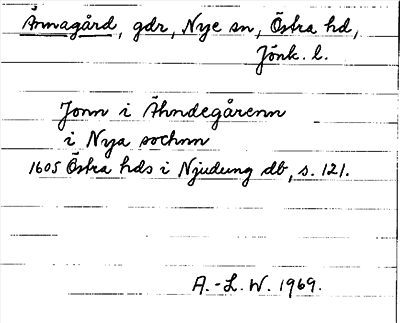 Ärnagård, gdr, Nye sn, Östra hd,
Jönk. l.
Jonn i Ähndegårenn
i Nya sochnn
1605 Östra hds i Njudung db, s. 121.
A.-L. W. 1969.